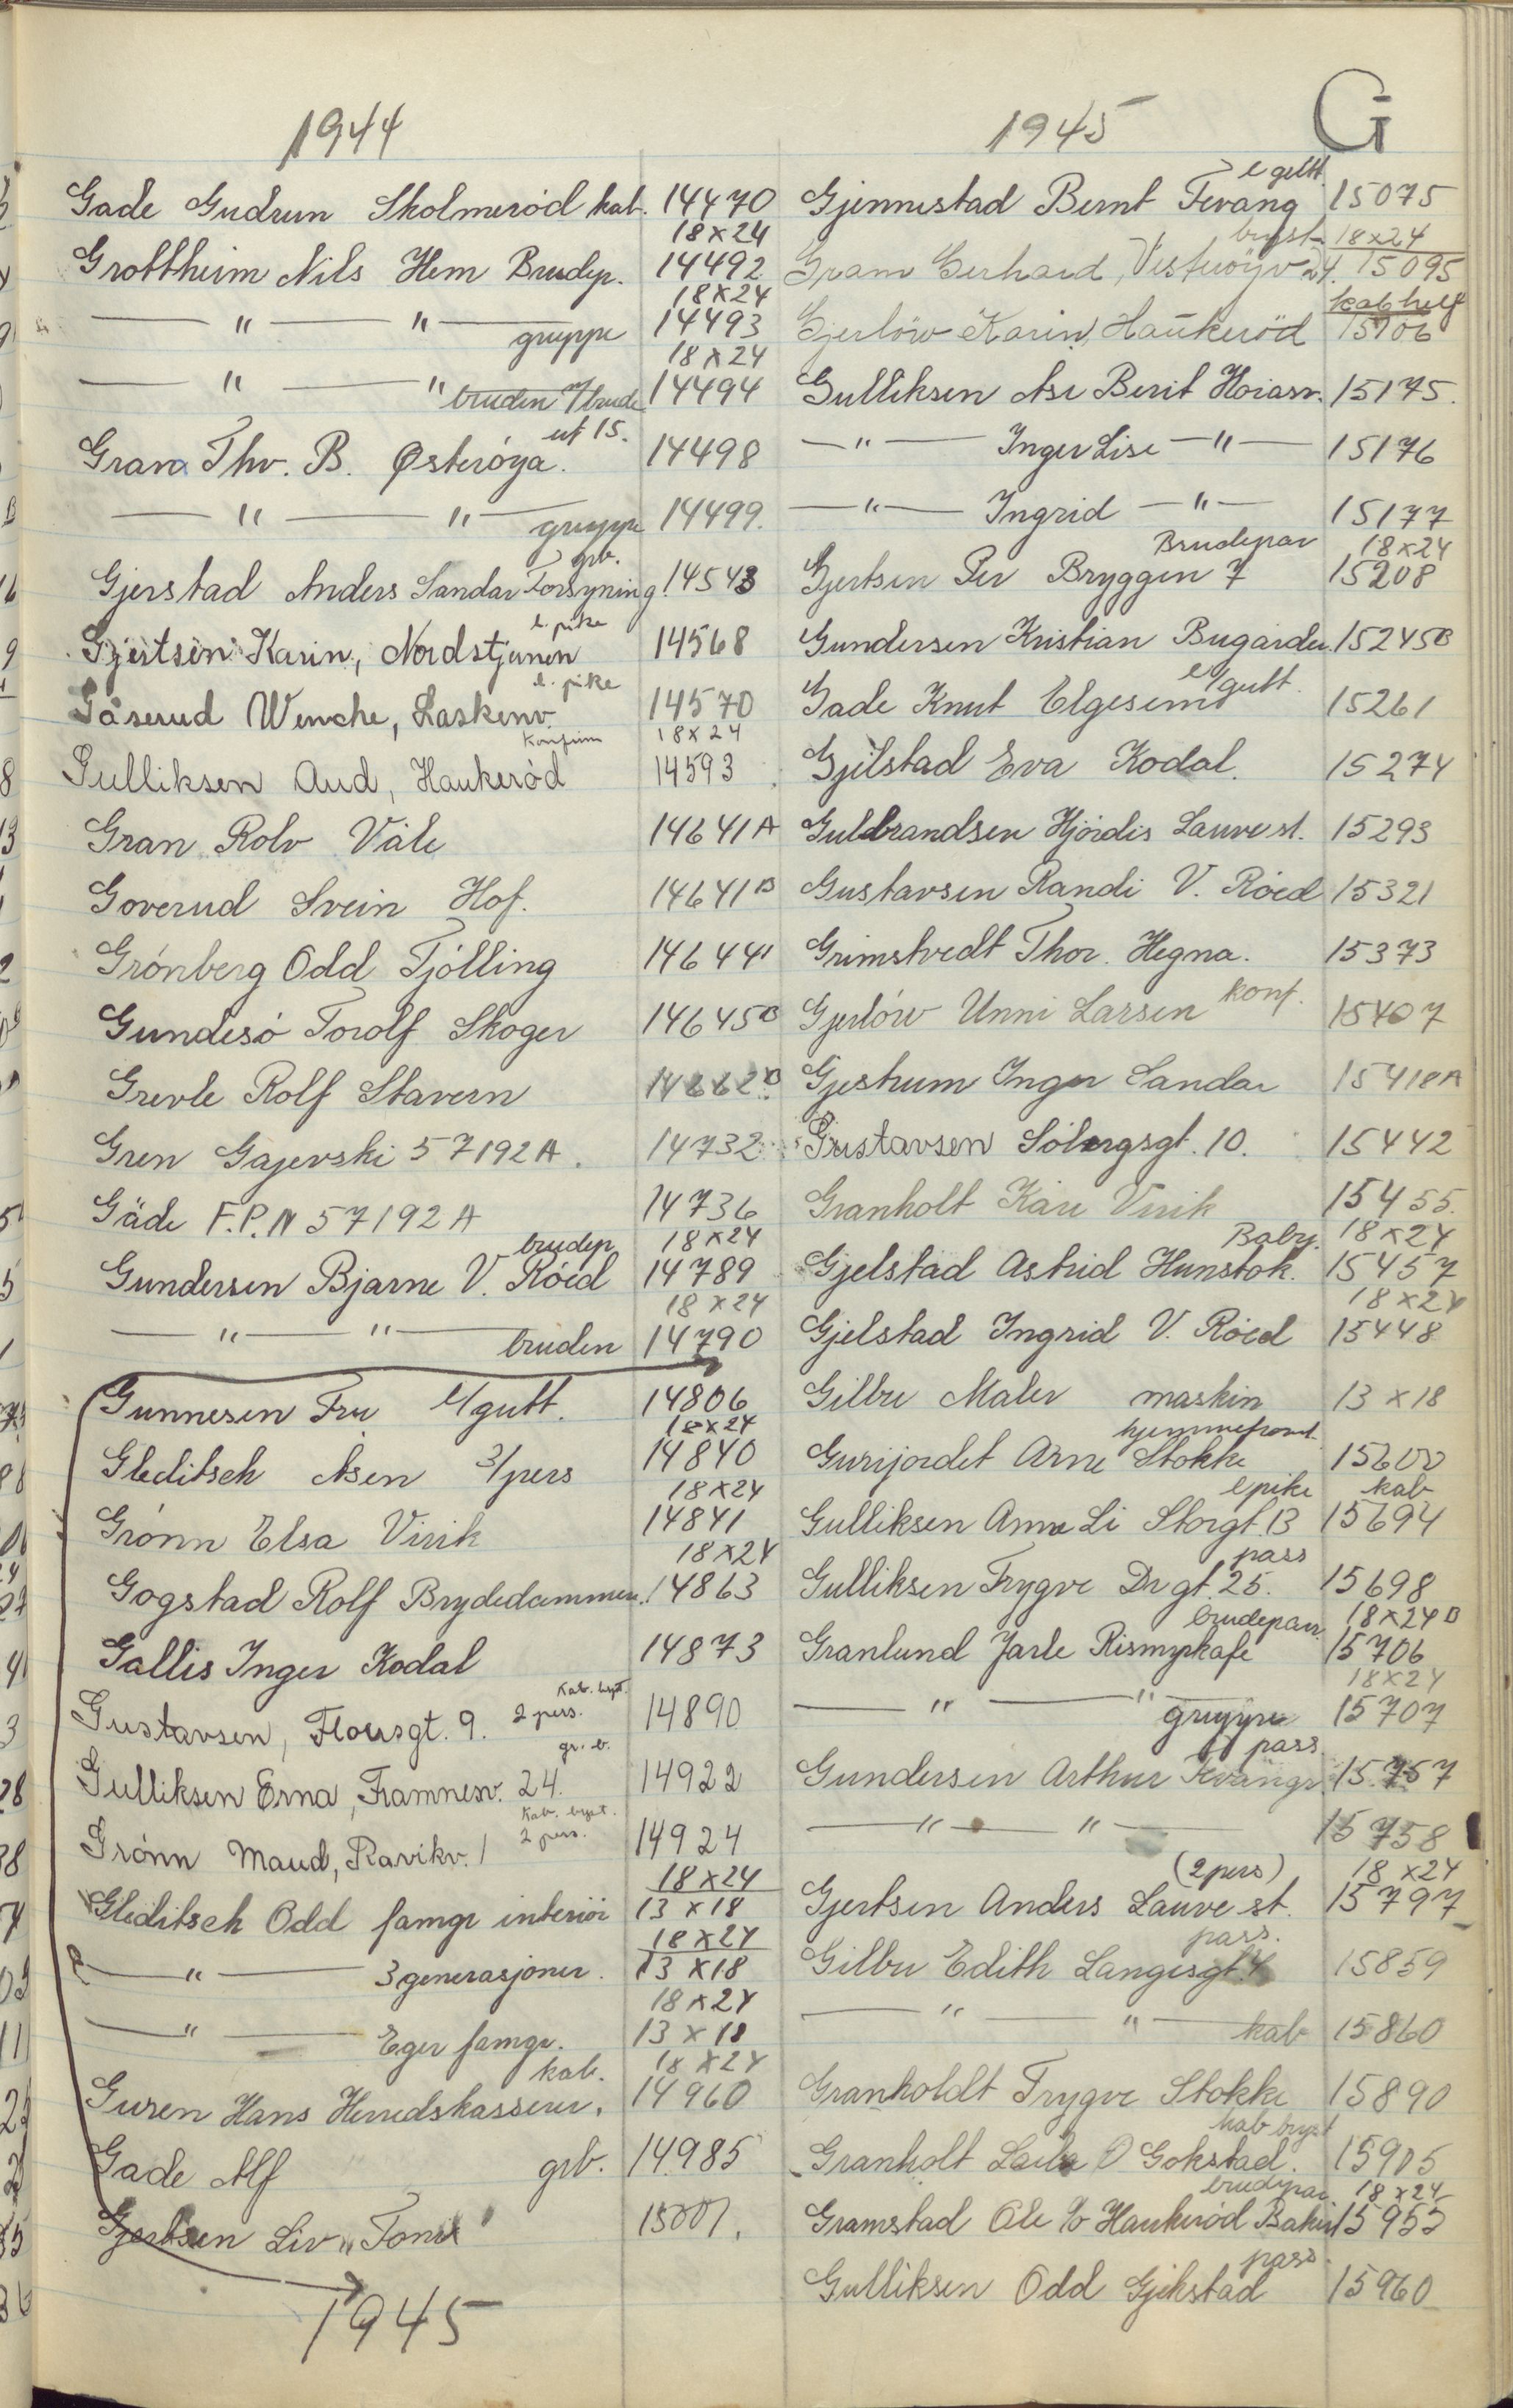 G
1944
Gade Gudrun Skolmerød kab. 14470
18x24
Grottheim Nils Hem Brudep. 14492
18x24
— " — " — gruppe 14493
18x24
— " — " bruden m/brude 14494
ut 15.
Gran Thv. B. Østerøya. 14498
— " — " — gruppe 14499.
grb.
Gjerstad Anders Sandar Forsyning. 14543
l. pike
Gjertsen Karin, Nordstjernen 14568
l. pike
Gåserud Wenche, Laskenv. 14570
Konfirm 18x24
Gulliksen Aud, Haukerød 14593
Gran Rolv Våle 14641A
Goverud Svein Hof. 14641B
Grönberg Odd Tjölling 14644
Gundesö Torolf Skoger 14645B
Grevle Rolf Stavern 14662B
Gren Gajevski 57192A. 14732
Gäde F.P.N 57192A 14736
brudep 18x24
Gundersen Bjarne V. Röed 14789
18x24
— " — " — bruden 14790
Gunnesen Fru l/gutt. 14806
18x24
Gleditsch Asen 3/pers 14840
18x24
Grönn Elsa Virik 14841
18x24
Gogstad Rolf Brydedammen. 14863
Gallis Inger Kodal 14873
Kab. bryst.
Gustavsen, Floersgt. 9. 2 pers. 14890
gr. b.
Gulliksen Erna, Framnesv. 24. 14922
Kab. bryst.
Grönn Maud, Ravikv. 1 2 pers. 14924
18x24
Gleditsch Odd famgr interiör 13x18
18x24
— " — 3 generasjoner. 13x18
18x24
— " — Eger famgr. 13x18
kab. 18x24
Guren Hans Herredskasserer. 14960
Gade Alf grb. 14985
Gjertsen Liv "Toner" 15001.
1945
1945
l gutt.
Gjennestad Bernt Tevang 15075
bryst 18x24
Gram Gerhard, Vesterøyv 24. 15095
kab helf
Gjerløw Karin, Haukerød 15106
Gulliksen Åse Berit Hoiasv. 15175.
— " — Inger Lise — " — 15176
— " — Ingrid — " — 15177
Brudepar 18x24
Gjertsen Per Bryggen 7 15208
Gundersen Kristian Bugården. 15245B
l/gutt.
Gade Knut Elgesem 15261
Gjelstad Eva Kodal. 15274
Gulbrandsen Hjördis Lauve st. 15293
Gustavsen Randi V. Röed 15321
Grimstvedt Thor. Hegna. 15373
Gjerlöw Unni Larsen konf. 15407
Gjestrum Inger Sandar 15418A
Gustavsen Sölbergsgt. 10. 15442
Granholt Kåre Virik 15455.
Baby. 18x24
Gjelstad Astrid Hunstok. 15457
18x24
Gjelstad Ingrid V. Röed 15448
Gilbu Maler maskin 13x18
hjemmefront
Gurijordet Arne Stokke 15600
l pike kab
Gulliksen Anne Li Storgt. 13 15694
pass
Gulliksen Trygve Dr gt. 25. 15698
brudepar 18x24B
Granlund Jarle Rismyrkafe 15706
18x24
— " — " — gruppe 15707
pass.
Gundersen Arthur Kvängr. 15757
— " — " — 15758
(2pers) 18x24
Gjertsen Anders Lauve st. 15797
pass.
Gilbu Edith Langesgt. 4 15859
— " — " — kab 15860
Granholdt Trygve Stokke 15890
kab bryst
Granholt Laila Ö Gokstad. 15905
brudepar 18x24
Gramstad Ole c/o Haukeröd Bakeri 15953
pass.
Gulliksen Odd Gjekstad 15960